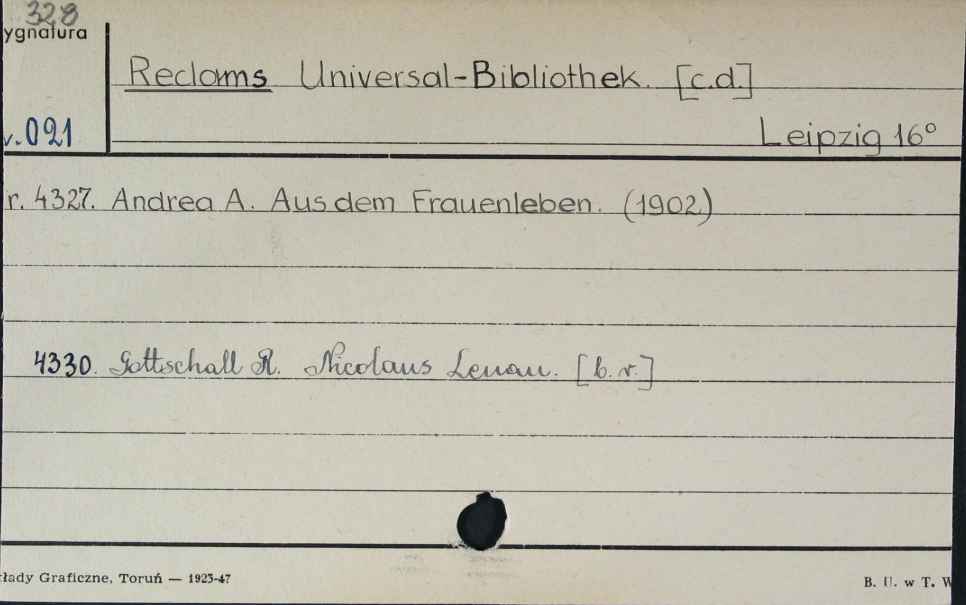 328
ygnatura
Reclams Universal-Bibliothek. [c.d.]
v.021
Leipzig 16°
r. 4327. Andrea A. Aus dem Frauenleben. (1902)
4330. Gottschall R. Nicolaus Lenau. [b. r.]
kłady Graficzne, Toruń — 1923-47
B. U. w T. W